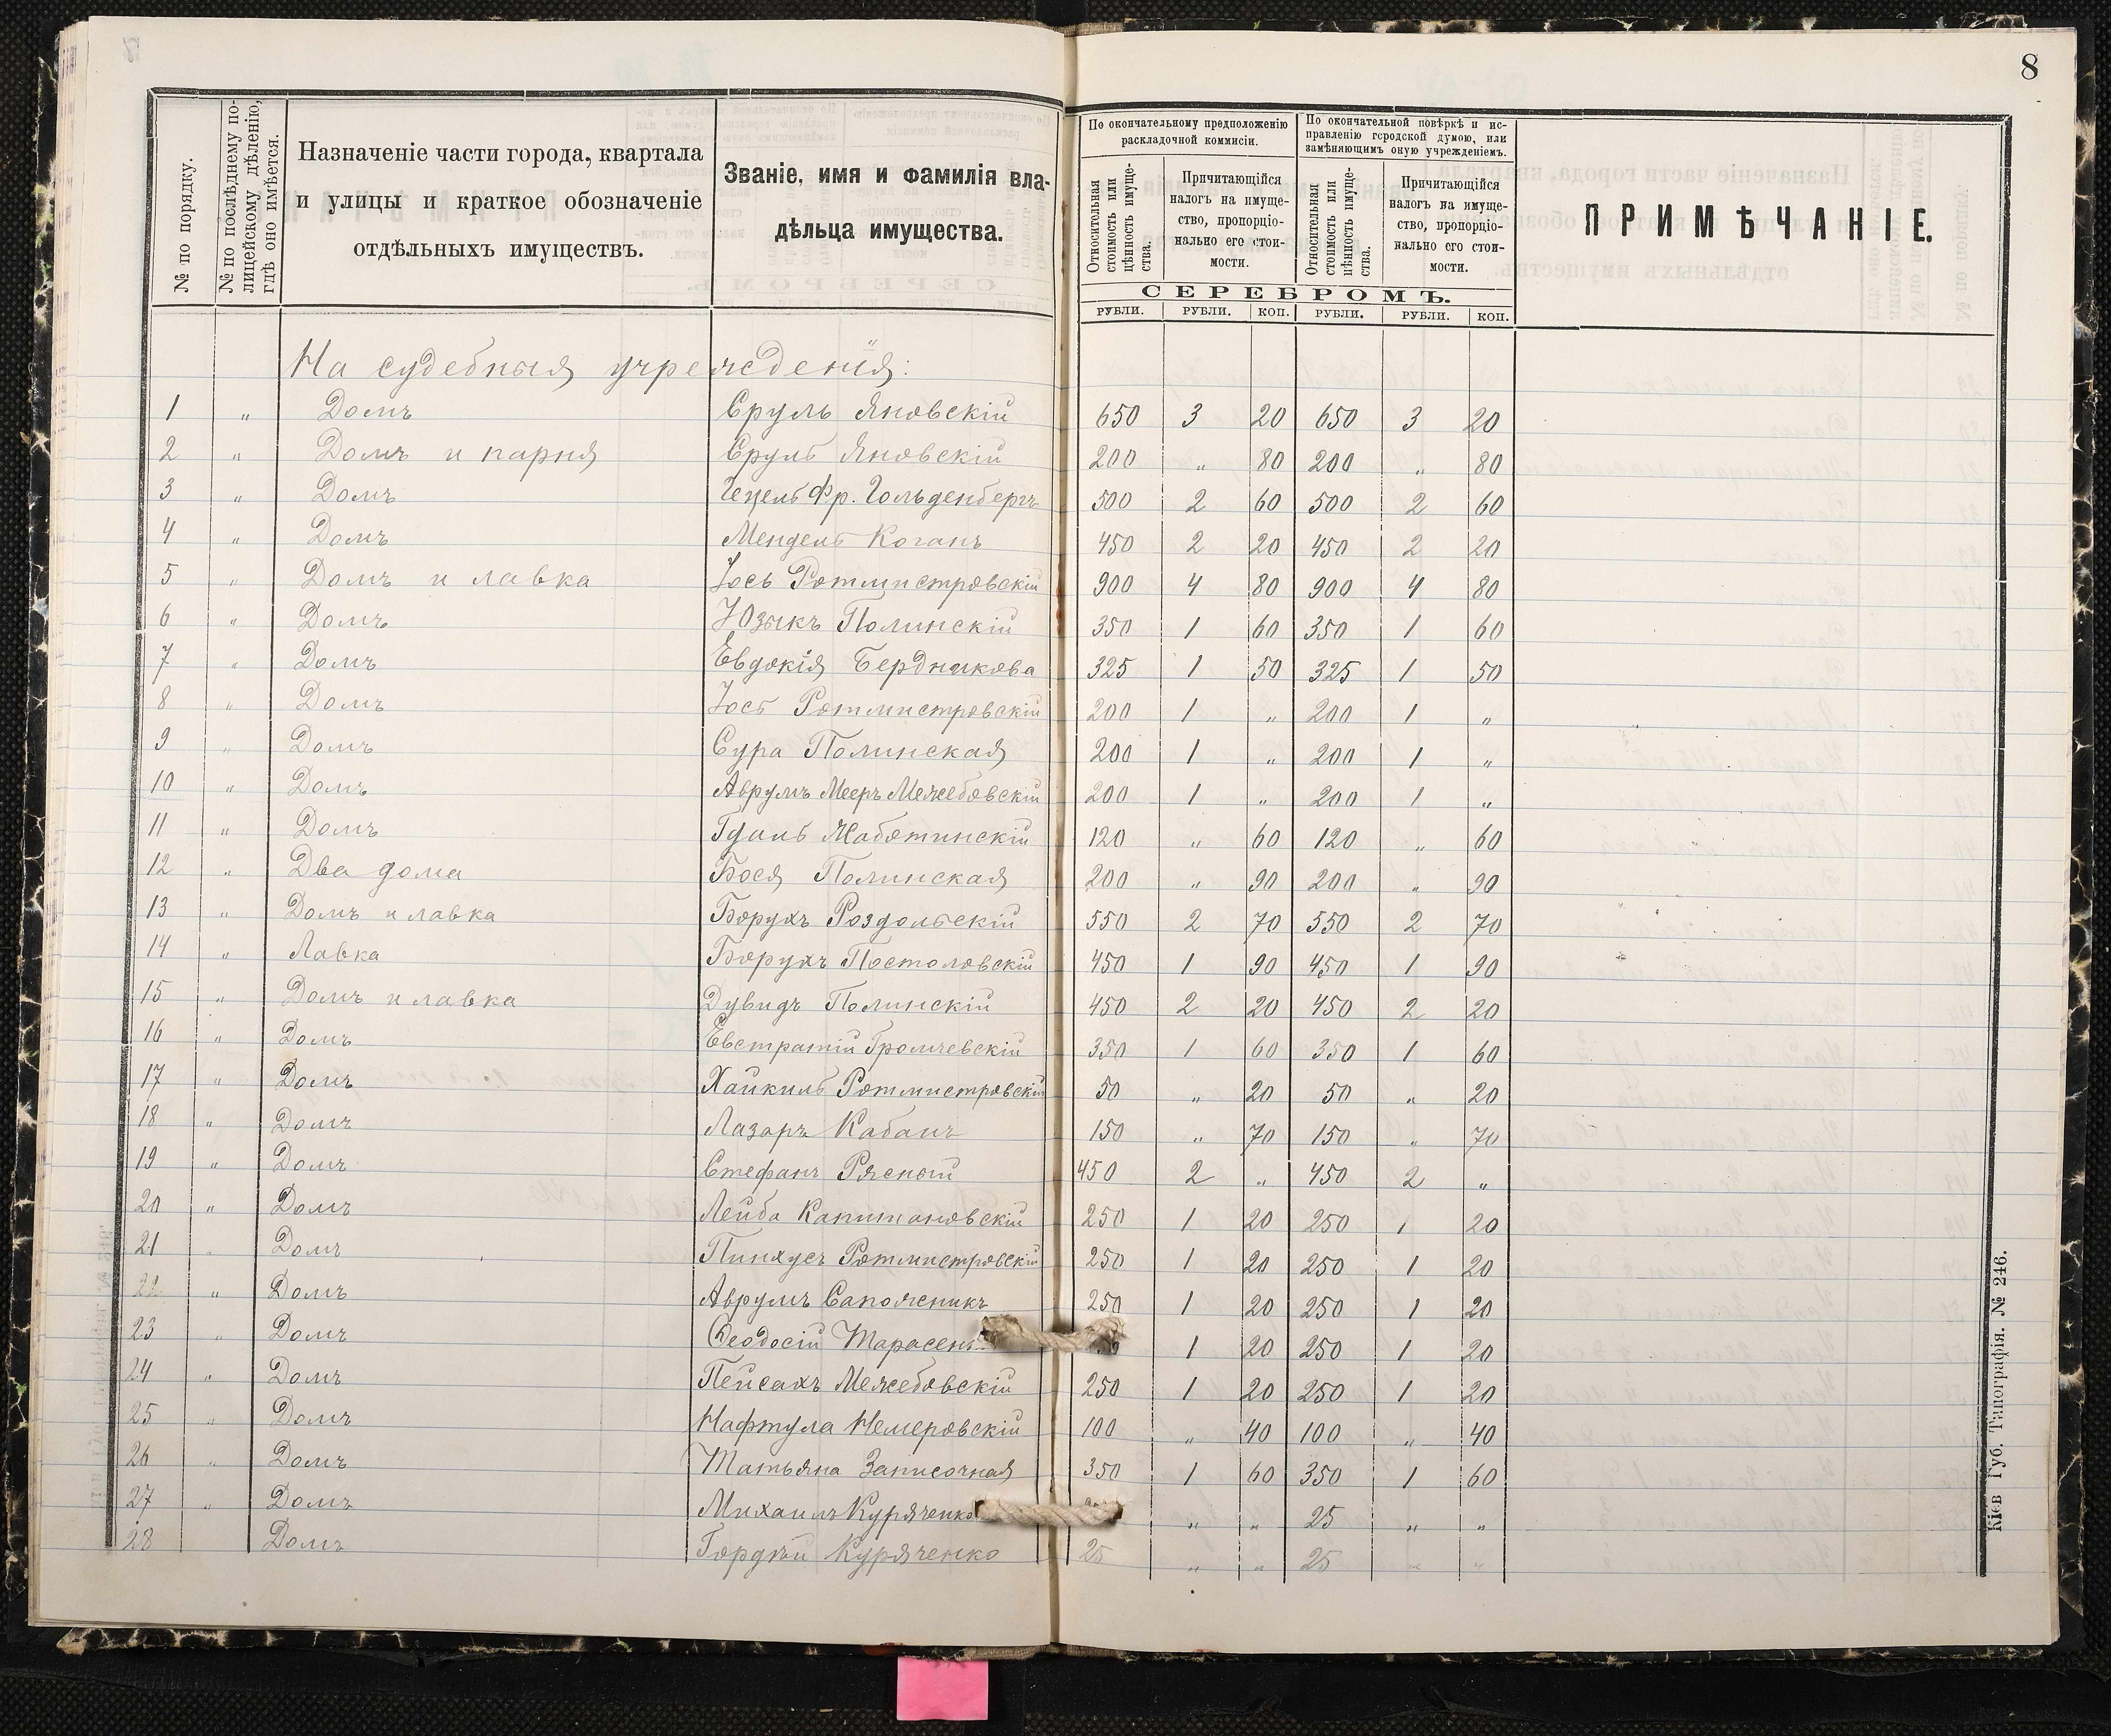 8
№ по порядку.
№ по послѣднему по-
лицейскому дѣленію,
гдѣ оно имѣется.
Назначеніе части города, квартала
и улицы и краткое обозначеніе
отдѣльныхъ имуществъ.
Званіе, имя и фамилія вла-
дѣльца имущества.
По окончательному предположенію
раскладочной коммисіи.
По окончательной повѣркѣ и ис-
правленію городской думою, или
замѣняющимъ оную учрежденіемъ.
Относительная
стоимость или
цѣнность имуще-
ства.
Причитающійся
налогъ на имуще-
ство, пропорціо-
нально его стои-
мости.
Относительная
стоимость или
цѣнность имуще-
ства.
Причитающійся
налогъ на имуще-
ство, пропорціо-
нально его стои-
мости.
ПРИМѢЧАНІЕ.
СЕРЕБРОМЪ.
РУБЛИ. РУБЛИ. КОП. РУБЛИ. РУБЛИ. КОП.
На судебныя учрежденія:
1 " Домъ Сруль Яновскій 650 3 20 650 3 20
2 " Домъ и парня Сруль Яновскій 200 " 80 200 " 80
3 " Домъ Гецель Фр. Гольденбергъ 500 2 60 500 2 60
4 " Домъ Мендель Коганъ 450 2 20 450 2 20
5 " Домъ и лавка Іось Ротмистровскій 900 4 80 900 4 80
6 " Домъ Юзыкъ Полинскій 350 1 60 350 1 60
7 " Домъ Евдокія Бердникова 325 1 50 325 1 50
8 " Домъ Іось Ротмистровскій 200 1 " 200 1 "
9 " Домъ Сура Полинская 200 1 " 200 1 "
10 " Домъ Аврумъ Мееръ Межебовскій 200 1 " 200 1 "
11 " Домъ Гдаль Жаботинскій 120 " 60 120 " 60
12 " Два дома Бося Полинская 200 " 90 200 " 90
13 " Домъ и лавка Борухъ Роздольскій 550 2 70 550 2 70
14 " Лавка Борухъ Постоловскій 450 1 90 450 1 90
15 " Домъ и лавка Дувидъ Полинскій 450 2 20 450 2 20
16 " Домъ Евстратій Громчевскій 350 1 60 350 1 60
17 " Домъ Хайкиль Ротмистровскій 50 " 20 50 " 20
18 " Домъ Лазаръ Кабанъ 150 " 70 150 " 70
19 " Домъ Стефанъ Рясный 450 2 " 450 2 "
20 " Домъ Лейба Капитановскій 250 1 20 250 1 20
21 " Домъ Пинхусъ Ротмистровскій 250 1 20 250 1 20
22 " Домъ Аврумъ Сапожникъ 250 1 20 250 1 20
23 " Домъ Ѳеодосій 1 20 250 1 20
24 " Домъ Пейсахъ Межебовскій 250 1 20 250 1 20
25 " Домъ Нафтула Немеровскій 100 " 40 100 " 40
26 " Домъ Татьяна Записочная 350 1 60 350 1 60
27 " Домъ Михаилъ Куряченко " " 25 " "
28 Домъ Гордѣй Куряченко 25 " " 25 " "
Кіев Губ. Типографія. № 246.